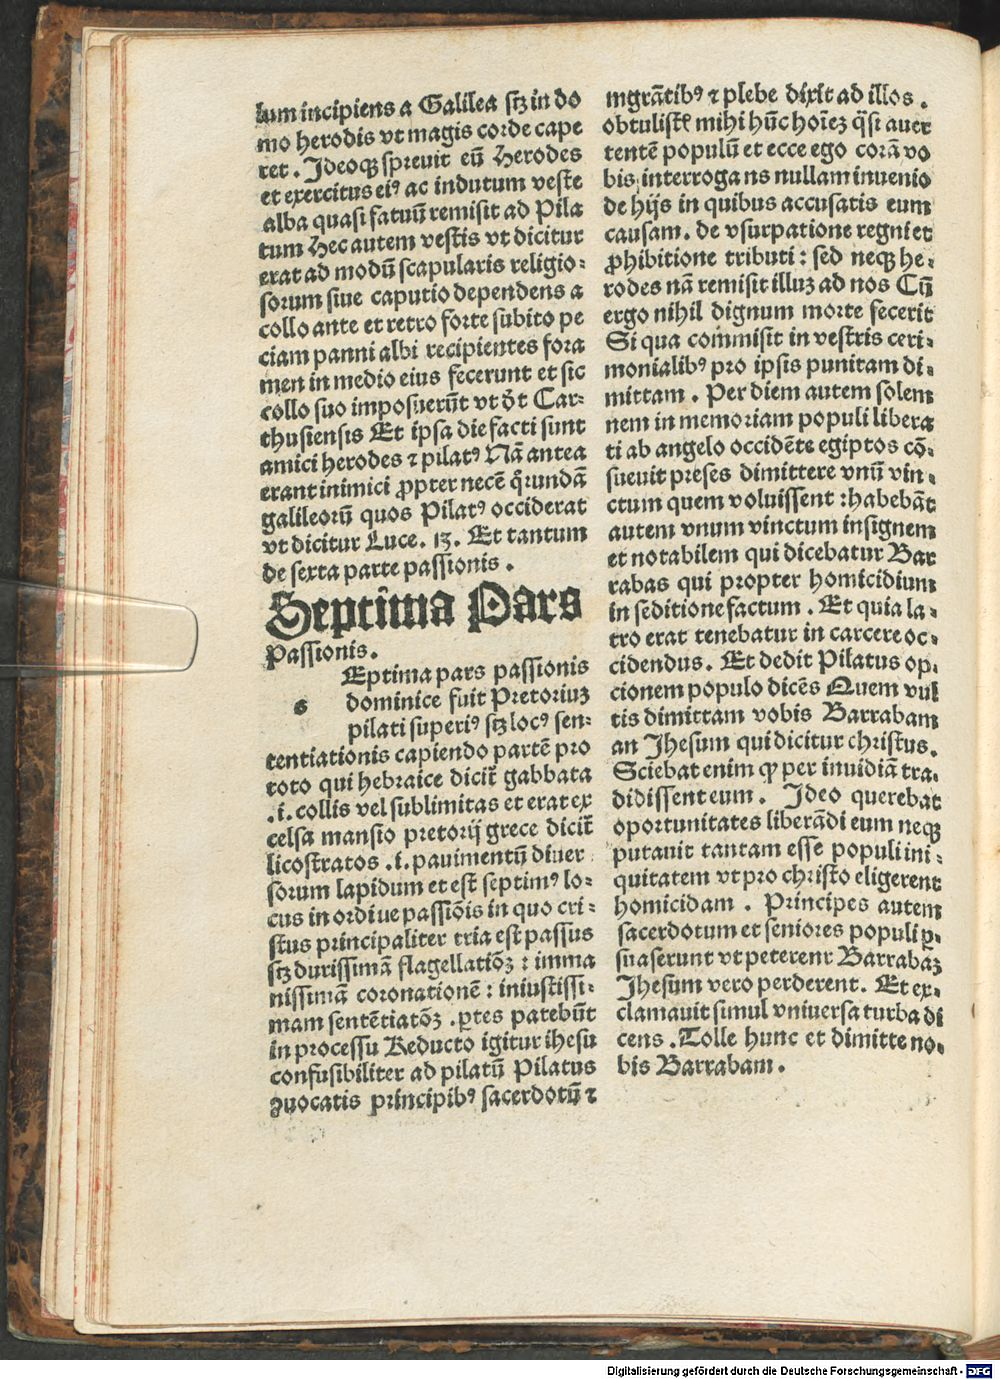 lum incipiens a Galilea sꝫ in do
mo herodis vt magis corde cape
ret . Ideoqꝫ spreuit eū Herodes
et exercitus eiꝰ ac indutum veste
alba quasi fatuū remisit ad Pila
tum Hec autem vestis vt dicitur
erat ad modū scapularis religio⸗
sorum siue caputio dependens a
collo ante et retro forte subito pe
ciam panni albi recipientes fora
men in medio eius fecerunt et sic
collo suo imposuerūt vt Car⸗
thusiensis Et ipsa die facti sunt
amici herodes ⁊ pilatꝰ Nā antea
erant inimici ꝓpter necē qͦrundā
galileorū quos Pilatꝰ occiderat
vt dicitur Luce. 13. Et tantum
de sexta parte passionis .
Septima Pars
Passionis.
Eptima pars passionis
s dominice fuit Pretoriuꝫ
pilati superiꝰ sꝫ locꝰ sen⸗
tentiationis capiendo partē pro
toto qui hebraice dicit̄ gabbata
.i. collis vel sublimitas et erat ex
celsa mansio pretorij grece dicit̄
licostratos .i. pauimentū diuer
sorum lapidum et est septimꝰ lo⸗
cus in ordiue passiōis in quo cri⸗
stus principaliter tria est passus
sꝫ durissimā flagellatiōꝫ : imma
nissimā coronationē : iniustissi⸗
mam sentētiatōꝫ . ꝑtes patebūt
in processu Reducto igitur ihesu
confusibiliter ad pilatū Pilatus
ꝯuocatis principibꝰ sacerdotū ⁊
mgrātibꝰ ⁊ plebe dixit ad illos .
obtulistꝭ mihi hūc hoīeꝫ q̄si auer
tentē populū et ecce ego corā vo
bis interrogans nullam inuenio
de hijs in quibus accusatis eum
causam. de vsurpatione regni et
ꝓhibitione tributi : sed neqꝫ he⸗
rodes nā remisit illuꝫ ad nos Cū
ergo nihil dignum morte fecerit
Si qua commisit in vestris ceri⸗
monialibꝰ pro ipsis punitam di⸗
mittam . Per diem autem solem
nem in memoriam populi libera
ti ab angelo occidēte egiptos cō⸗
sueuit preses dimittere vnū vin⸗
ctum quem voluissent : habebāt
autem vnum vinctum insignem
et notabilem qui dicebatur Bar
rabas qui propter homicidium
in seditione factum . Et quia la⸗
tro erat tenebatur in carcere oc⸗
cidendus. Et dedit Pilatus op⸗
cionem populo dicēs Quem vul
tis dimittam vobis Barrabam
an Jhesum qui dicitur christus.
Sciebat enim ꝙ per inuidiā tra⸗
didissent eum . Ideo querebat
oportunitates liberādi eum neqꝫ
putauit tantam esse populi ini⸗
quitatem vt pro christo eligerent
homicidam . Principes autem
sacerdotum et seniores populi ꝑ⸗
suaserunt vt peterenr Barrabāꝫ
Jhesum vero perderent. Et ex⸗
clamauit simul vniuersa turba di
cens . Tolle hunc et dimitte no⸗
bis Barrabam .
Digitalisierung gefördert durch die Deutsche Forschungsgemeinschaft - DFG